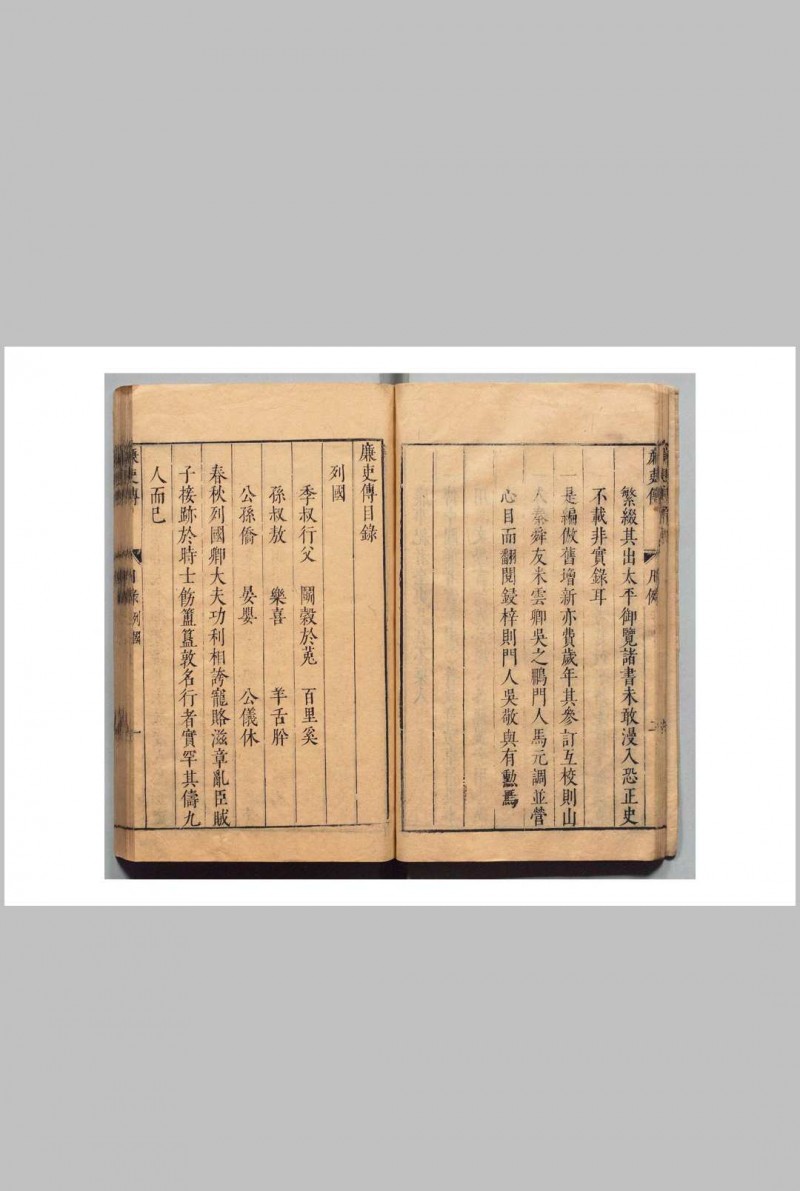 繁綴其出太平御覽諸書未敢漫入恐正史
不載非實錄耳
一是編倣舊增新亦費歲年其參訂互校則山
人秦舜友米雲卿吳之鵬門人馬元調並營
心目而翻閱鋟梓則門人吳敬與有勲焉
廉吏傳目錄
列國
季叔行父 鬬穀於菟 百里奚
孫叔敖 樂喜 羊舌肸
公孫僑 晏嬰 公儀休
春秋列國卿大夫功利相誇寵賂滋章亂臣賊
子接跡於時士飭簠簋敦名行者實罕其儔九
人而已
廉吏傳
目錄 列國
一